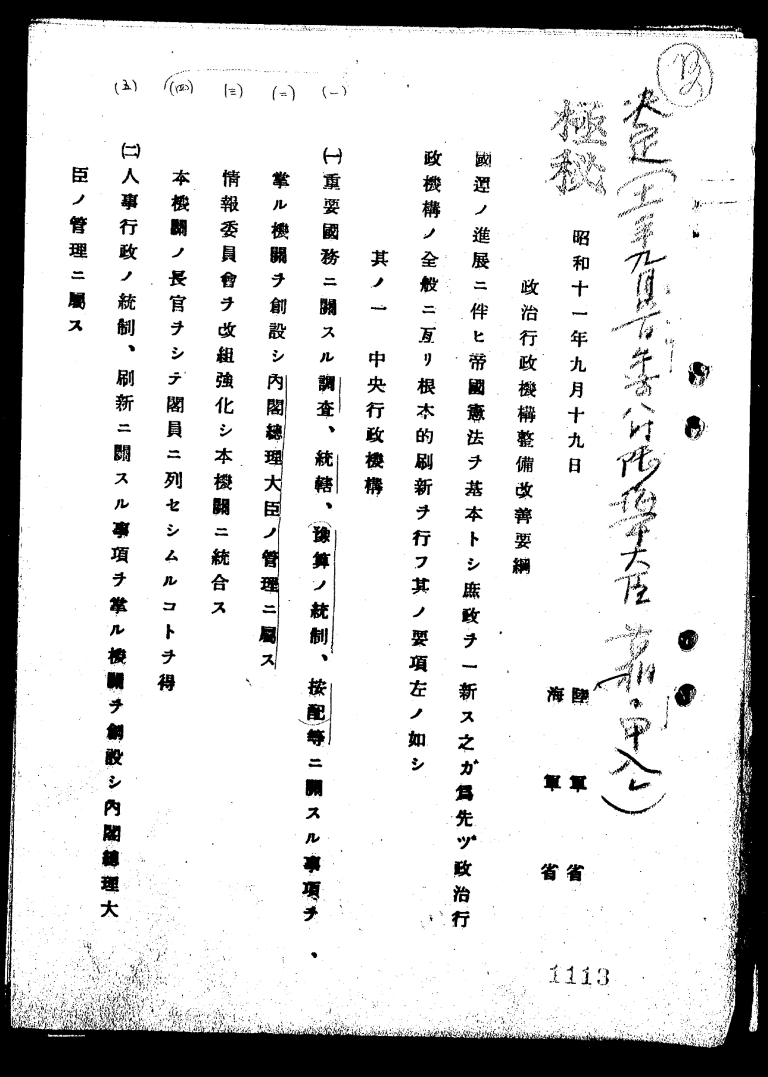 極秘
昭和十一年九月十九日
陸軍省
海軍省
政治行政機構整備改善要綱
國運ノ進展ニ伴ヒ帝國憲法ヲ基本トシ庶政ヲ一新ス之ガ爲先ヅ政治行
政機構ノ全般ニ亙リ根本的刷新ヲ行フ其ノ要項左ノ如シ
其ノ一 中央行政機構
(一)
㈠重要國務ニ關スル調査、統轄、豫算ノ統制、按配等ニ關スル事項ヲ、
(二)
掌ル機關ヲ創設シ內閣總理大臣ノ管理ニ屬ス
(三)
情報委員會ヲ改組強化シ本機關ニ統合ス
(四)
本機關ノ長官ヲシテ閣員ニ列セシムルコトヲ得
(五)
㈡人事行政ノ統制、刷新ニ關スル事項ヲ掌ル機關ヲ創設シ內閣總理大
臣ノ管理ニ屬ス
1113